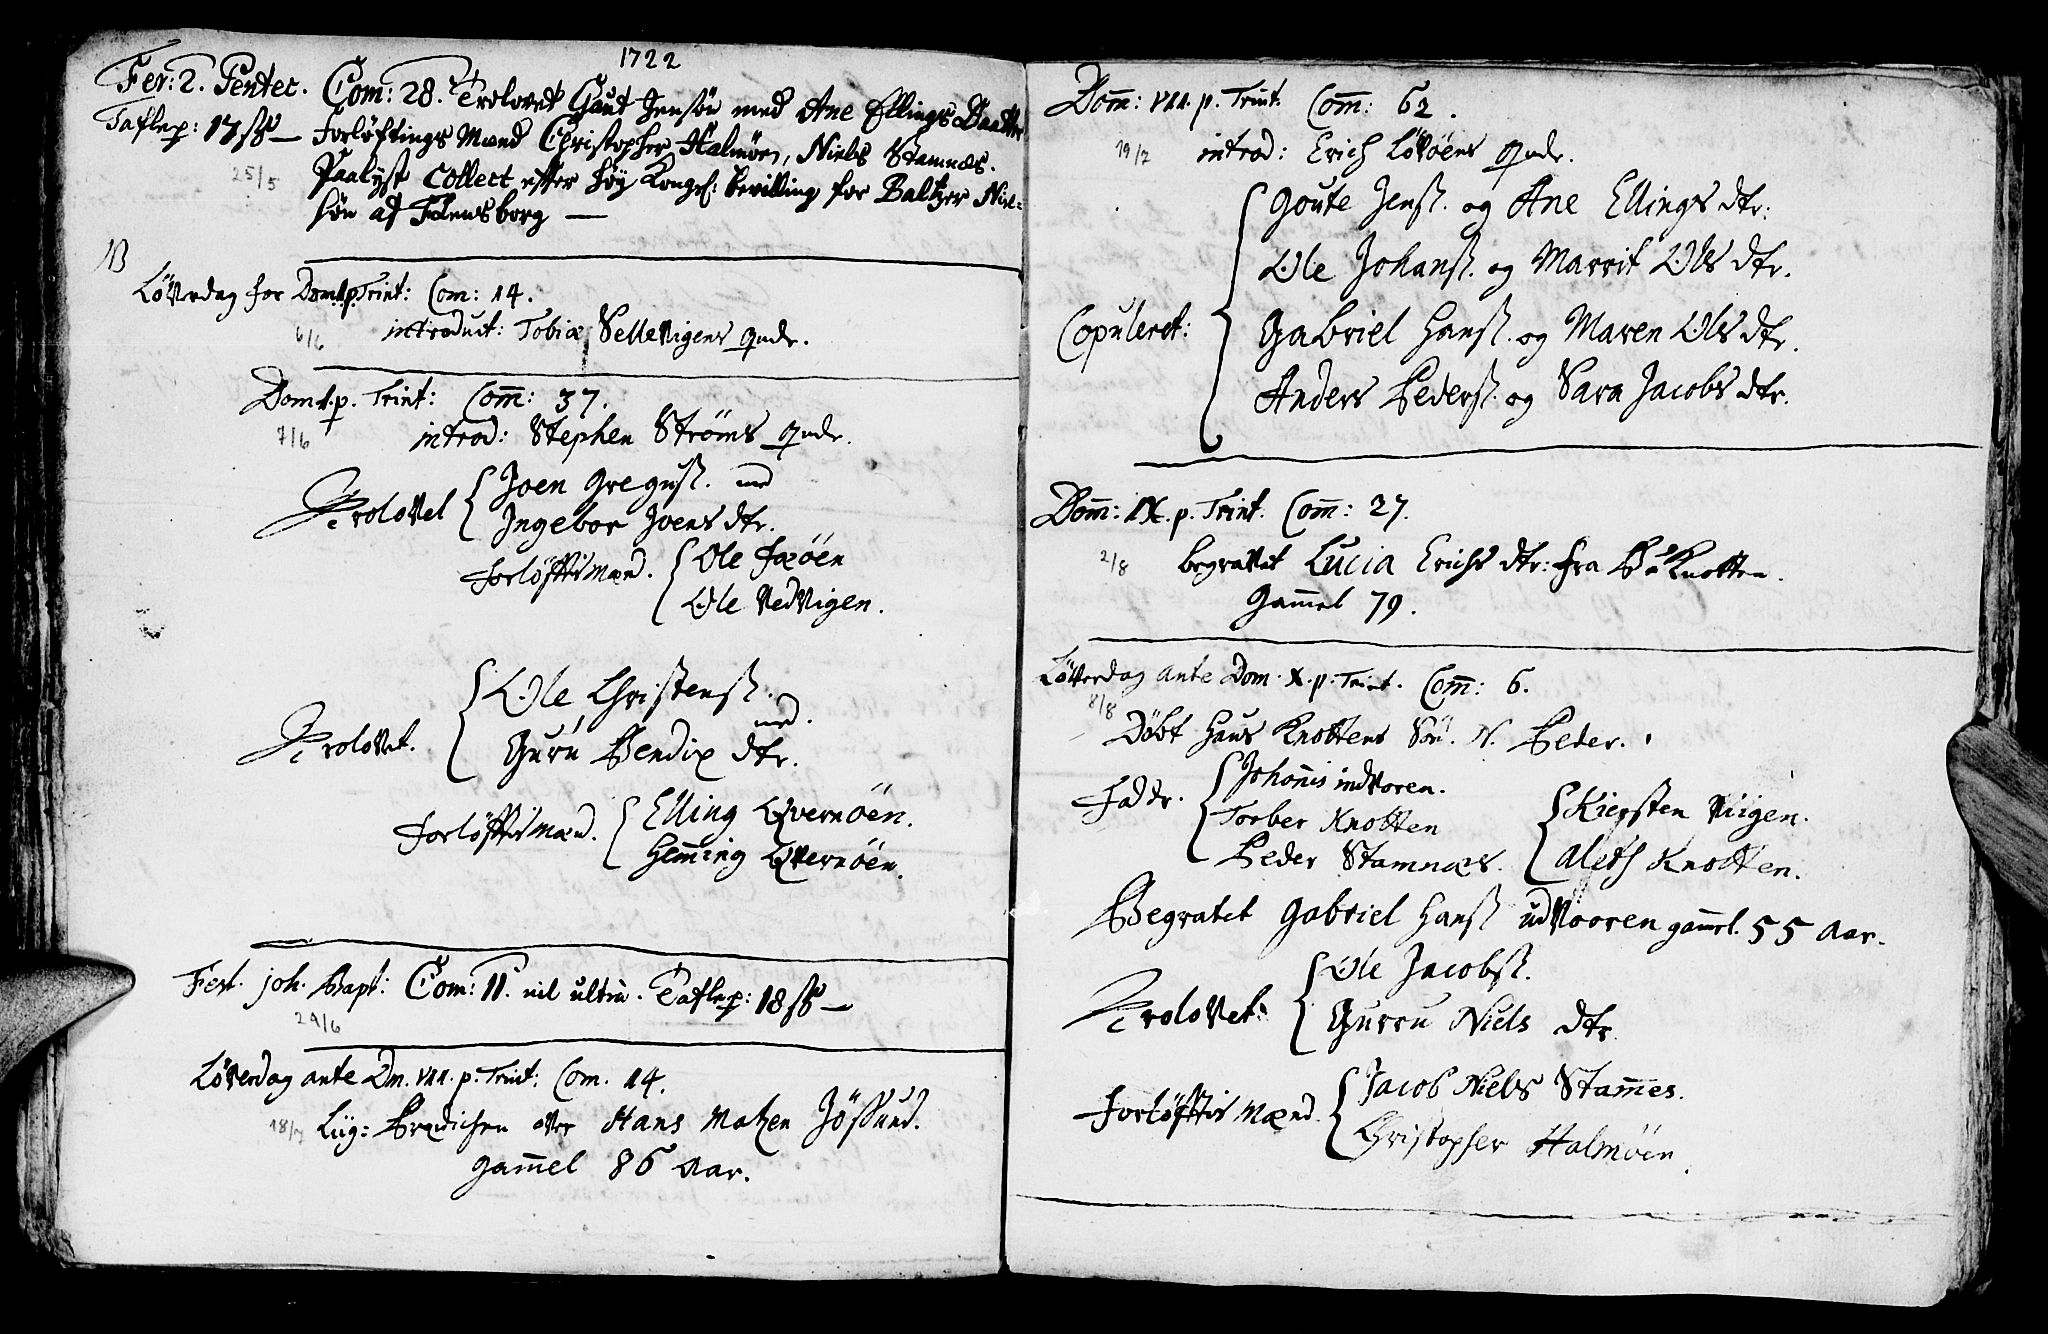 1722
Fer: 2. Pentec. Com: 28. Trolovet Gaut Jensøn med Ane Ellings Daatter
Taflep: 17 ß — Forløftings Mænd Christopher Halmøen, Niels Stamnæs.
25/5 Paalyst Collect efter høy Kongel: bevilling for Baltzer Niel=
søn af Flensborg —
NB
Løverdag før Dom. 1. p. Trint: Com: 14.
6/6 introduct: Tobiæ Sellevigens qvde.
Dom 1. p. Trint: Com̄: 37.
7/6 introd: Stephen Strøms qvde.
Trolovet Joen Gregusß. med
Ingebor Joens dtr.
Forløftis Mænd. Ole Foxøen
Ole Vedvigen.
Ole Christensß. med.
Trolovet.
Guru Bendix dtr.
Forløftis Mænd. Elling Qvernøen.
Hem̄ing Qvernøen.
Fest. Joh. Bapt: Com: 11. nil ultra. Taflep: 18 ß —
24/6
Løverdag ante Dm. VII. p. Trint: Com. 14.
18/7 Liig: Prædichen over Hans Matzen Jøssund.
gam̄el 86 Aar.
Dom̄: VII. p. Trint. Com̄: 62.
19/7 introd: Erich Løvøens qvde.
Goute Jensß. og Ane Ellings dtr:
Ole Johansß. og Marrit Ols dtr.
Copuleret:
Gabriel Hansß. og Maren Ols dtr.
Anders Pedersß. og Sara Jacobs dtr.
Dom̄: IX. p. Trint. Com̄: 27.
2/8 begravet Lucia Erichs dtr: fra Knotten.
Gam̄el 79.
Løverdag ante Dom. X. p. Trint. Com̄: 6.
8/8
Døbt Hans Knottens Søn. N. Peder.
Faddr. Johan̄is indvoren.
Torber Knotten
Peder Stamnæs.
Kiersten Viigen.
Aleth Knotten.
Begravet Gabriel Hansß udvooren gam̄el. 55 Aar.
Ole Jacobsß.
Trolovet:
Gurru Niels dtr.
Forløftis Mænd. Jacob Niels Stam̄es.
Christopher Halmøen.